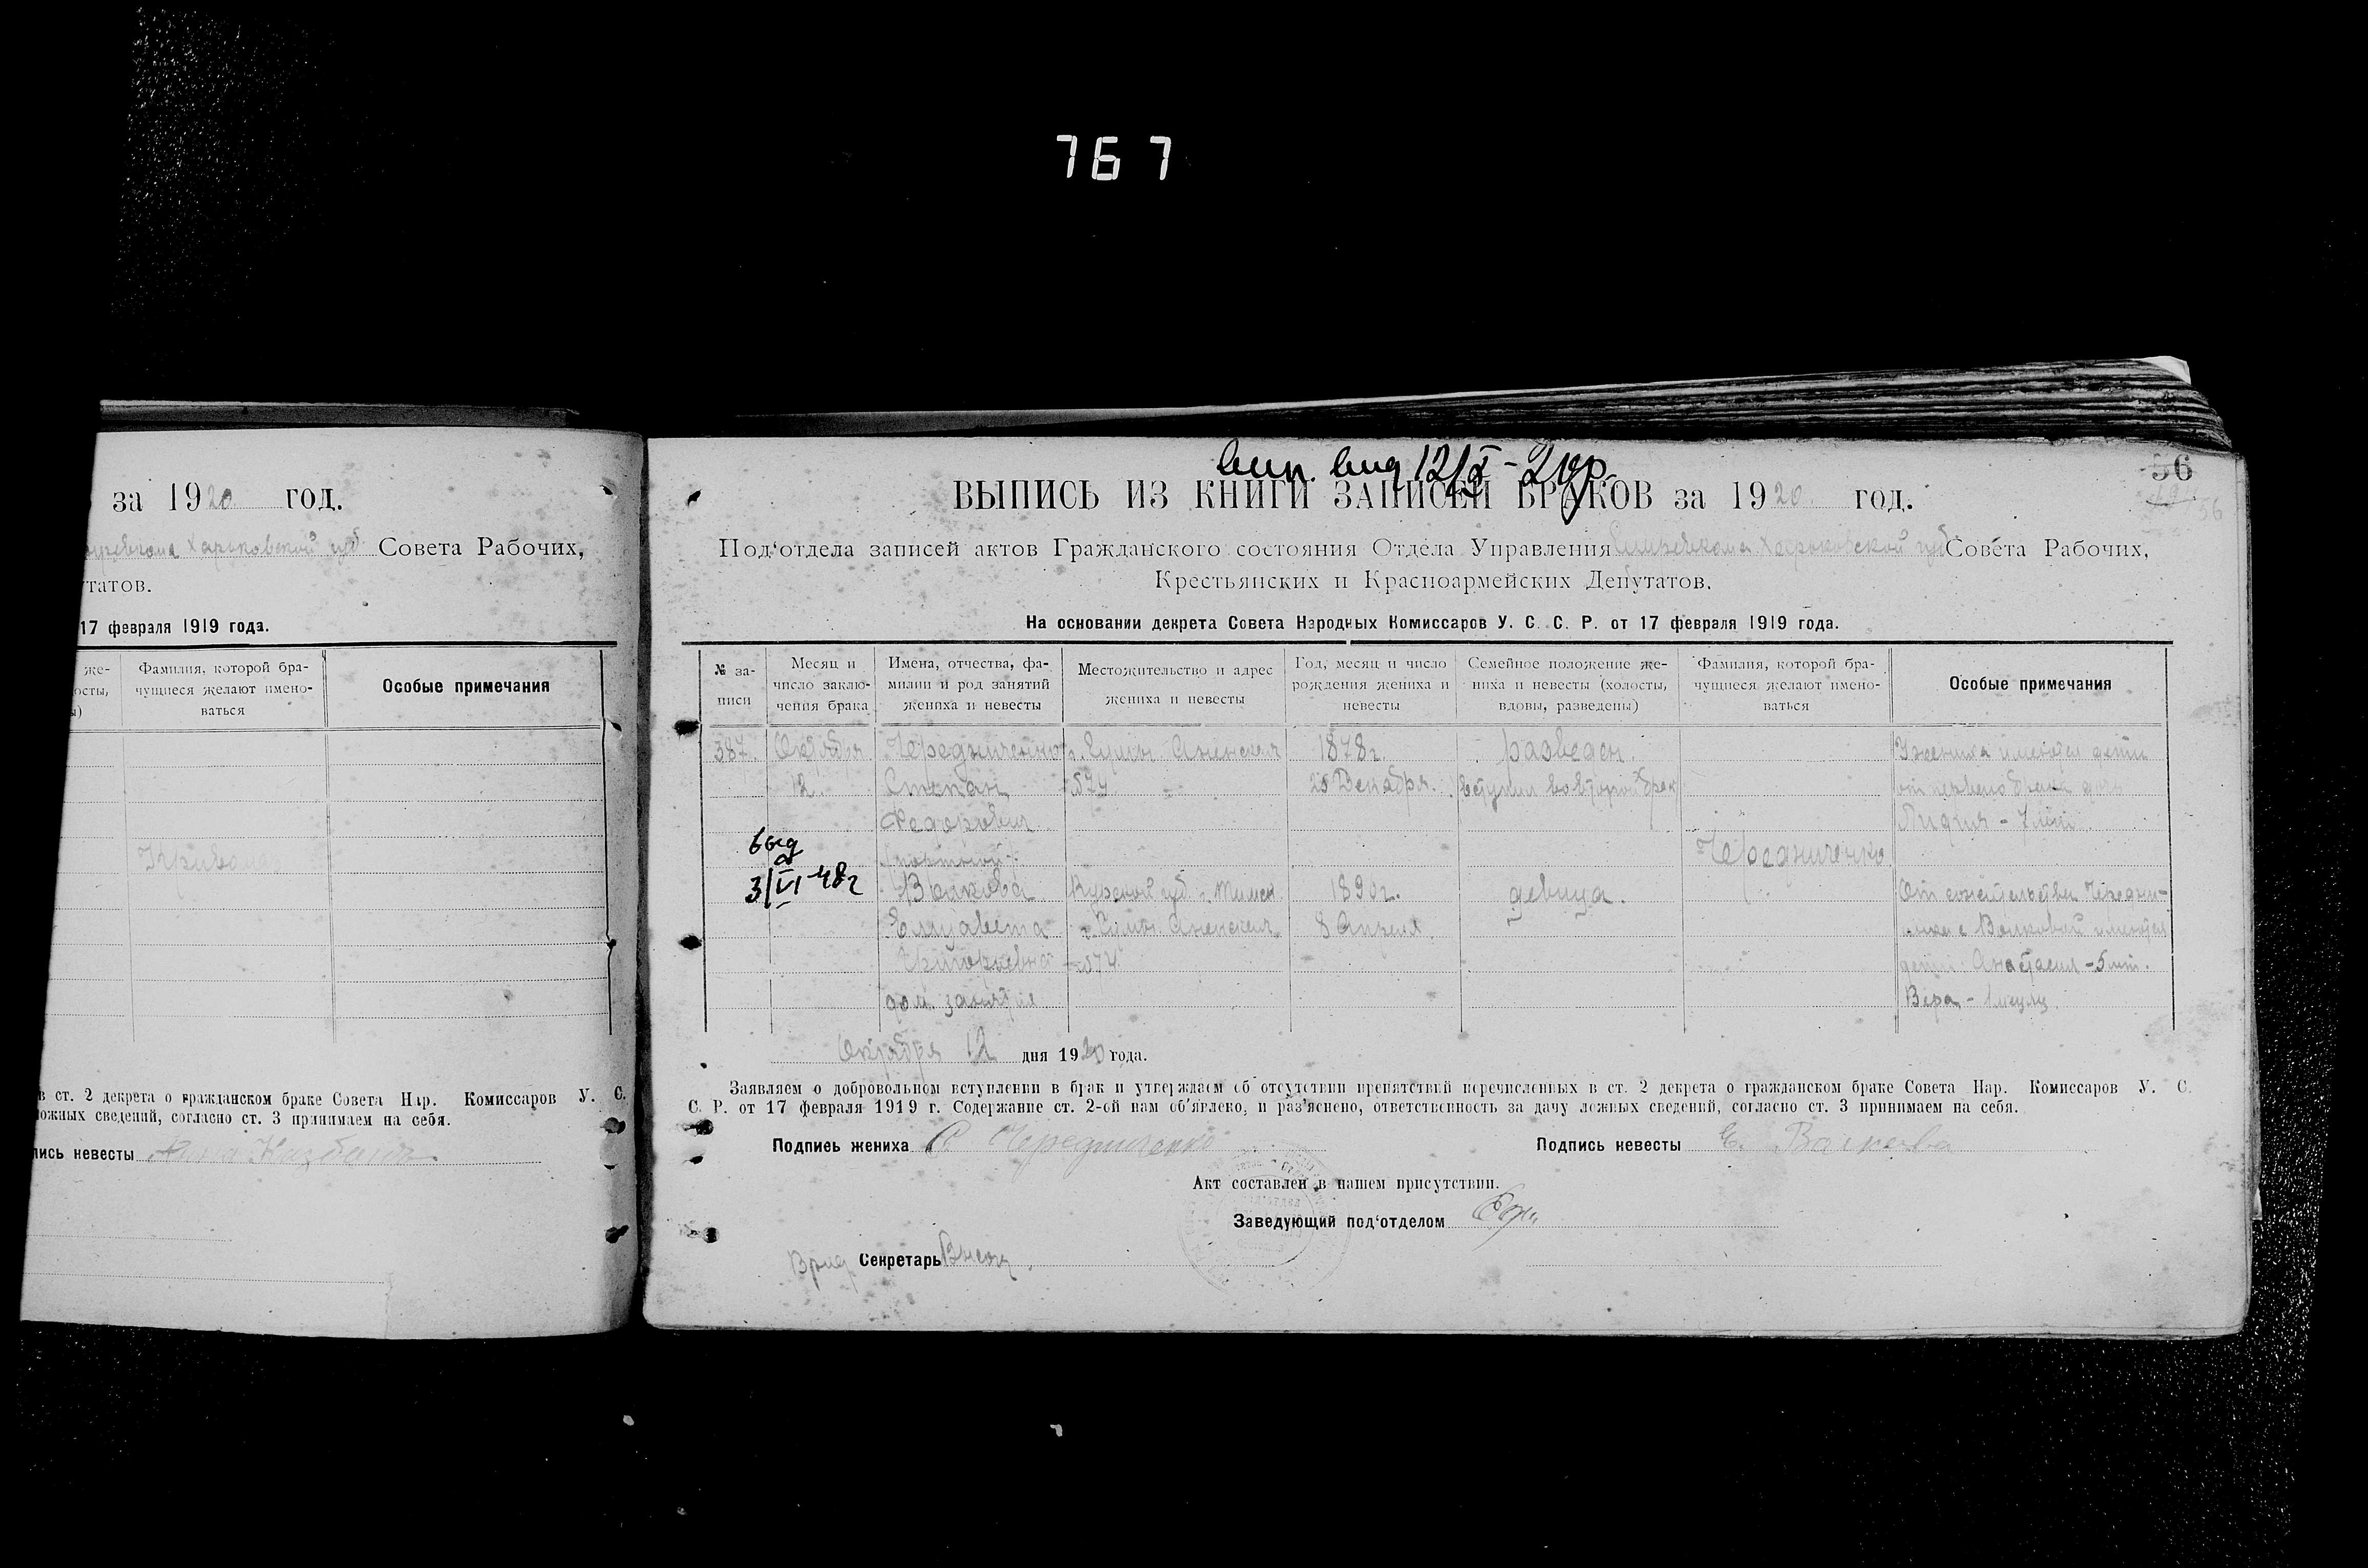 767
за 1920 год.
Харьковской губ. Совета Рабочих,
татов.
17 февраля 1919 года.
же-
ости,
Фамилия, которой бра-
чущиеся желают имено-
ваться
Особые примечания
в ст. 2 декрета о гражданском браке Совета Нар. Комиссаров У. С.
ложных сведений, согласно ст. 3 принимаем на себя.
пись невесты
56
56
ВЫПИСЬ ИЗ КНИГИ ЗАПИСЕЙ БРАКОВ за 1920 год.
Под'отдела записей актов Гражданского состояния Отдела Управления Харьковской губ Совета Рабочих,
Крестьянских и Красноармейских Депутатов.
На основании декрета Совета Народных Комиссаров У. С. С. Р. от 17 февраля 1919 года.
№ за-
писи
Месяц и
число заклю-
чения брака
Имена, отчества, фа-
милии и род занятий
жениха и невесты
Местожительство и адрес
жениха и невесты
Год, месяц и число
рождения жениха и
невесты
Семейное положение же-
ниха и невесты (холосты,
вдовы, разведены)
Фамилия, которой бра-
чущиеся желают имено-
ваться
Особые примечания
387. Октября Чередниченко 1878г. разведен. У жениха имеются дети
12. Степан 20 Декабря. вступил во второй брак от первого брака дочь
Федорович Лидия - 7 лет.
Чередниченко
3/VI-48г Волкова Курской губ. 1890г. девица. От сожительства Чередни-
Елизавета 8 Апреля. ченко с Волковой имеются
Григорьевна дети: Анастасия - 5 лет.
дом. занятия Вера -
Октября 12 дня 1920 года.
Заявляем о добровольном вступлении в брак и утверждаем об отсутствии препятствий перечисленных в ст. 2 декрета о гражданском браке Совета Нар. Комиссаров У. С.
С. Р. от 17 февраля 1919 г. Содержание ст. 2-ой нам об'явлено, и раз'яснено, ответственность за дачу ложных сведений, согласно ст. 3 принимаем на себя.
Подпись жениха С Чередниченко Подпись невесты Е. Волкова
Акт составлен в нашем присутствии.
Заведующий под'отделом
Врид Секретарь